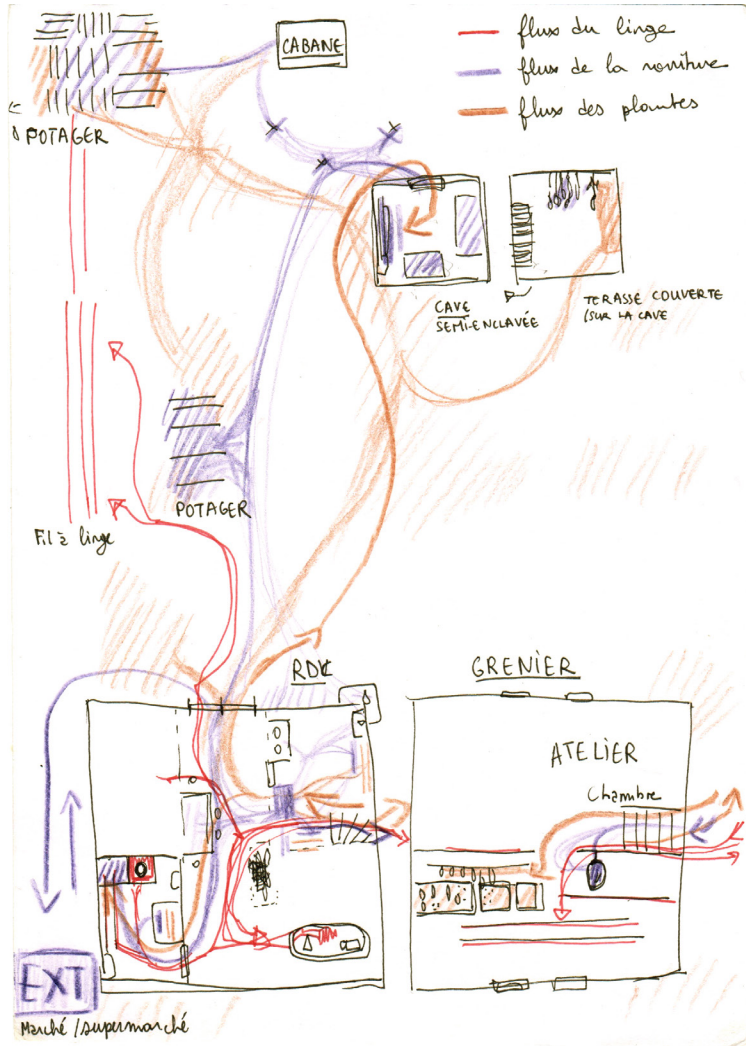 CABANE
flux du linge
flux de la nourriture
flux des plantes
POTAGER
CAVE
SEMI-ENCLAVÉE
TERASSE COUVERTE
/SUR LA CAVE
POTAGER
Fil à linge
RDC
GRENIER
ATELIER
Chambre
EXT
Marché/supermarché